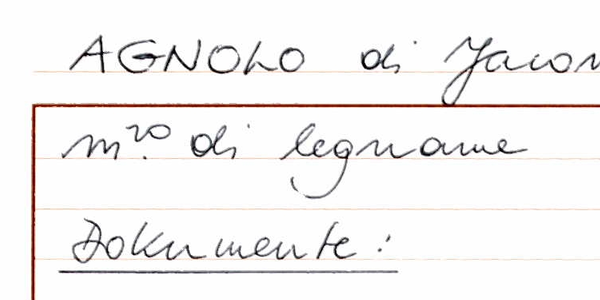 AGNOLO di Jacom
m.ro di legname
Dokumente: